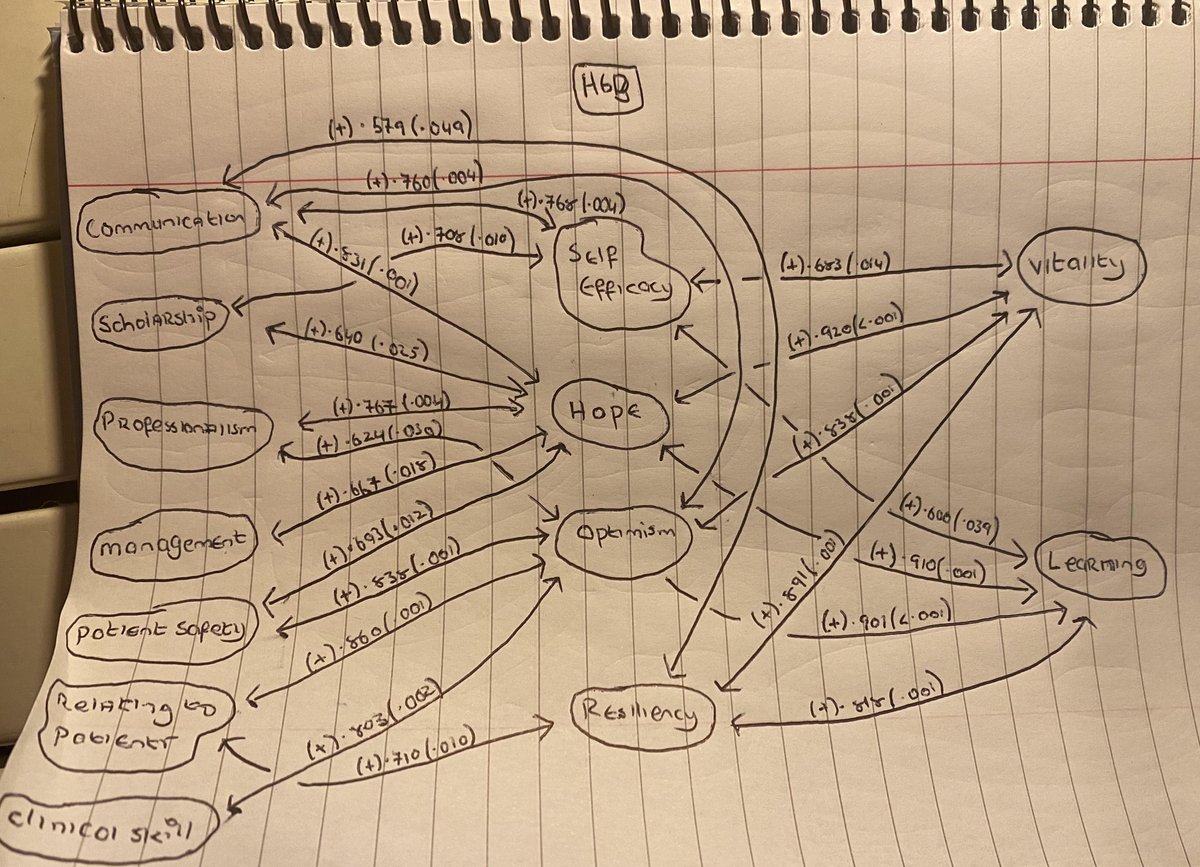 H6B
(+).579(.049)
(+).760(.004)
(+).768(.004)
Communication
(+).831(.001)
(+).708(.010)
Self
Efficacy
(+).683(.014)
Vitality
Scholarship
(+).640(.025)
(+).920(<.001)
Professionalism
(+).767(.004)
(+).624(.030)
Hope
(+).838(.001)
(+).667(.018)
management
(+).693(.012)
Optimism
(+).600(.039)
(+).838(.001)
(+).910(.001)
Learning
patient safety
(+).860(.001)
(+).891(.001)
(+).901(<.001)
Relating to
patients
(+).803(.002)
Resiliency
(+).818(.001)
(+).710(.010)
clinical skill